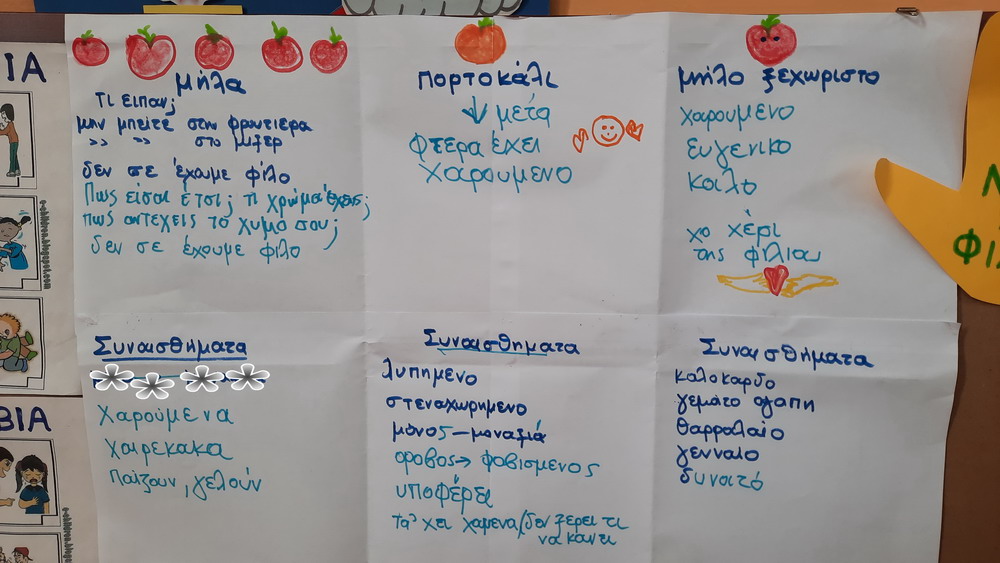 μήλα
Τι είπαν;
μην μπείτε στη φρουτιέρα
>> >> στο μίξερ
δεν σε έχουμε φίλο
Πως είσαι έτσι; τι χρώμα έχεις;
πως αντέχεις το χυμό σου;
δεν σε έχουμε φίλο
πορτοκάλι
μετά
φτερα έχει
χαρουμενο
μήλο ξεχωριστο
χαρουμενο
ευγενικο
καλο
χο χέρι
της φιλίας
Συναισθήματα
χαρούμενα
χαιρεκακα
παίζουν, γελούν
Συναισθηματα
λυπημενο
στεναχωρημενο
μόνος – μοναξιά
φοβος → φοβισμενος
υποφέρει
τα 'χει χαμενα/δεν ξερει τι
να κανει
Συναισθήματα
καλοκαρδο
γεμάτο αγαπη
θαρραλαίο
γενναίο
δυνατό
ΙΑ
ΒΙΑ
e-children.blogspot.com
ΦΙ